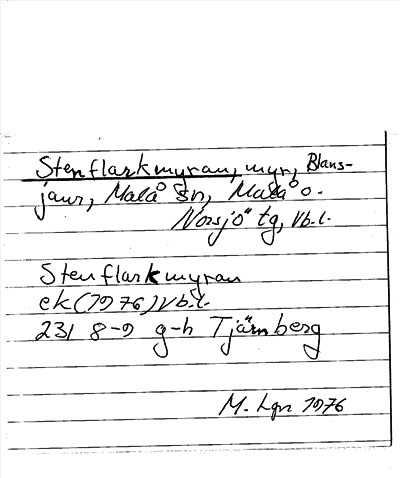 Stenflarkmyran, myr, Blans-
jaur, Malå sn, Malå o.
Norsjö tg, Vb.l.
Stenflarkmyran
ek (1976) Vb.l.
231 8-9 g-h Tjärnberg
M. Lgn 1976